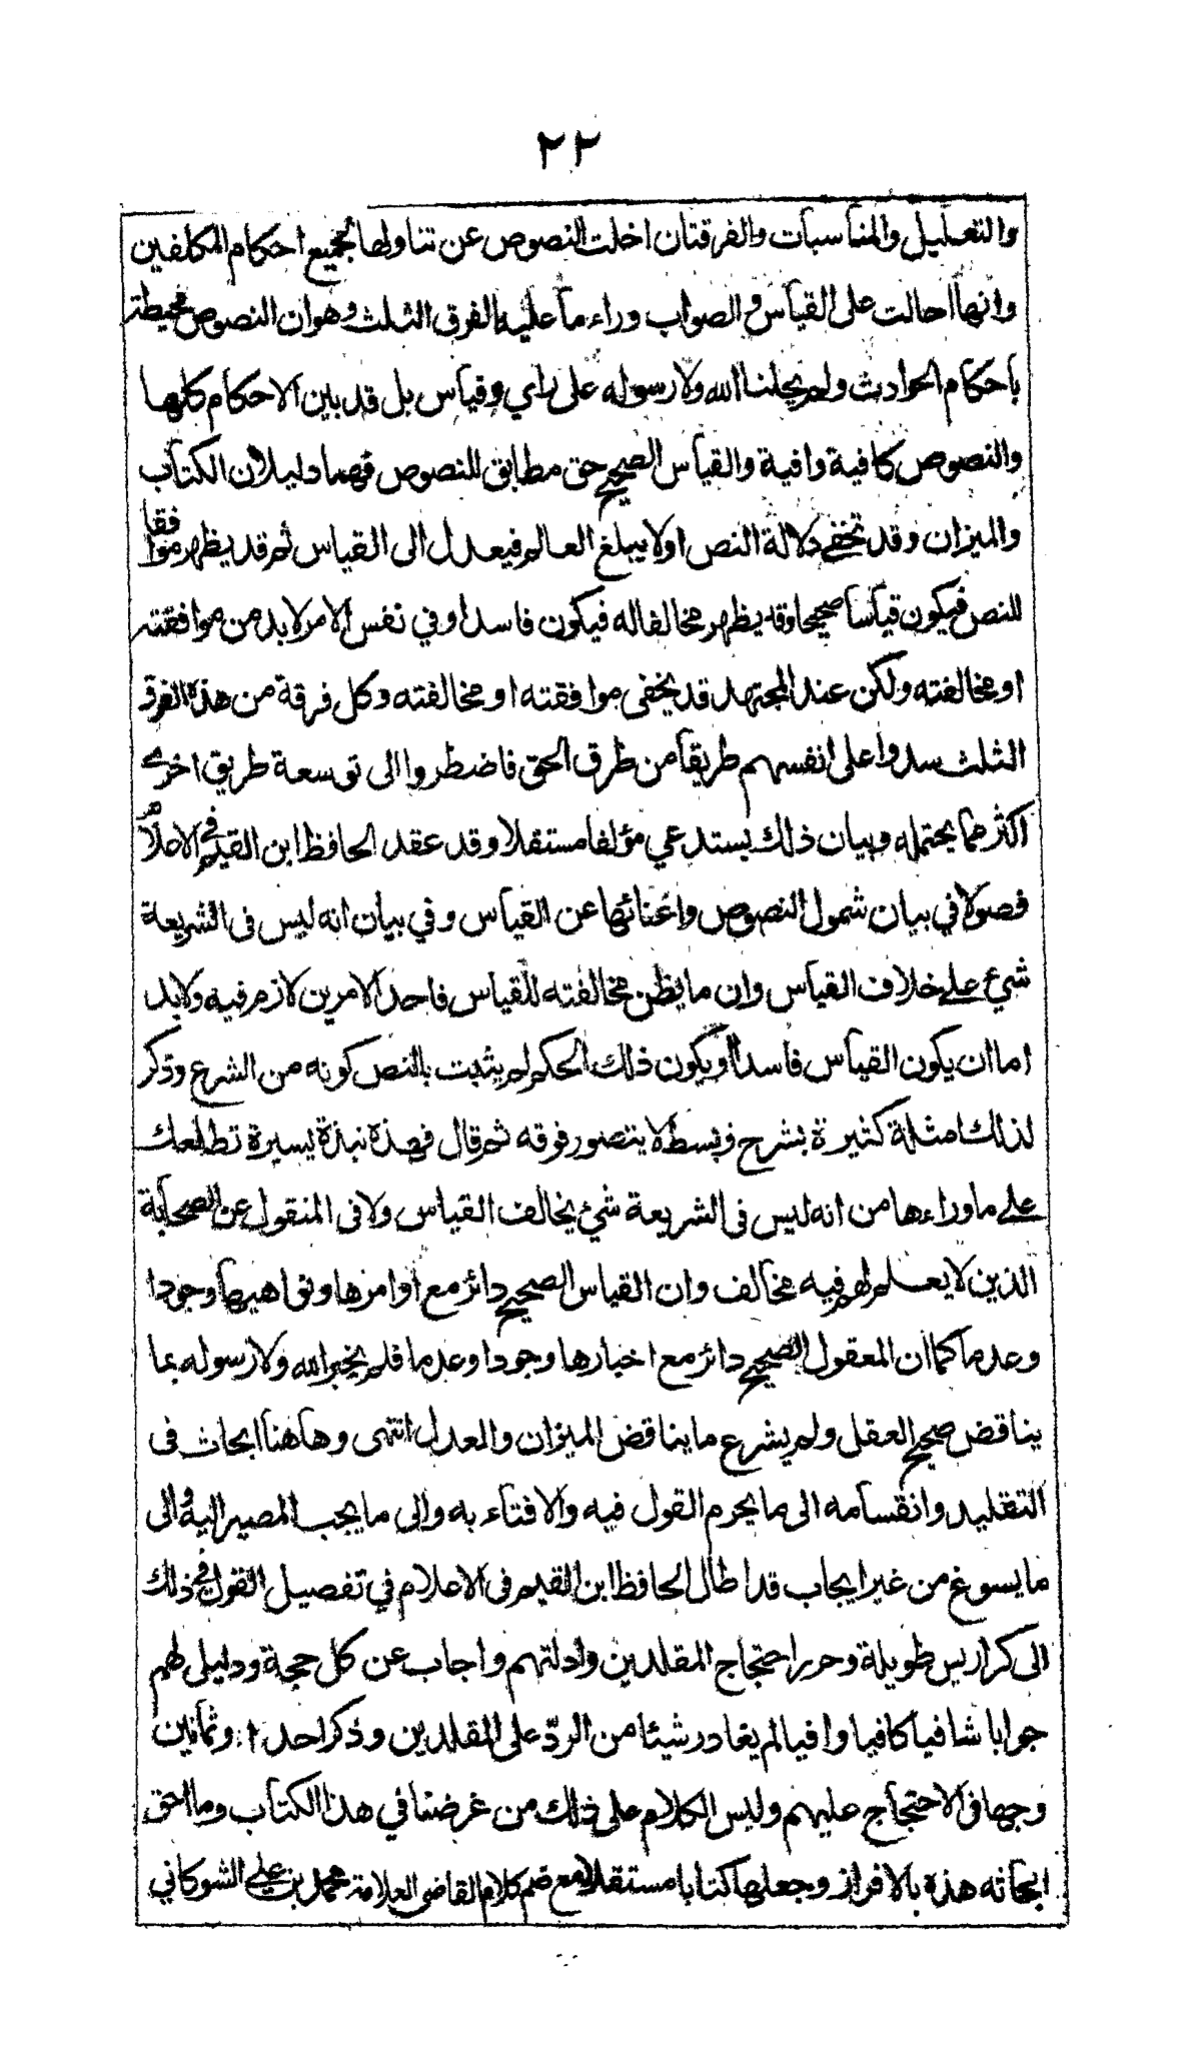 ٢٢
والتعليل والمناسبات والفرقتان اخلت النصوص عن تناولها لجميع احكام المكلفين
وانها احالت على القياس والصواب وراء ما عليه الفرق الثلث وهو ان النصوص محيطة
باحكام الحوادث ولم يحلنا الله ولا رسوله على راي وقياس بل قد بين الاحكام كلها
والنصوص كافية وافية والقياس الصحيح حق مطابق للنصوص فهما دليلان الكتاب
والميزان وقد تخفى دلالة النص او لا يبلغ العالم فيعدل الى القياس ثم قد يظهر موافقا
للنص فيكون قياسا صحيحا وقد يظهر مخالفا له فيكون فاسدا وفي نفس الامر لا بد من موافقته
او مخالفته ولكن عند المجتهد قد يخفى موافقته او مخالفته وكل فرقة من هذه الفرق
الثلث سدوا على انفسهم طريقا من طرق الحق فاضطروا الى توسعة طريق اخرى
اكثر مما يحتمله وبيان ذلك يستدعي مؤلفا مستقلا وقد عقد الحافظ ابن القيم في الاعلام
فصولا في بيان شمول النصوص واغنائها عن القياس وفي بيان انه ليس فى الشريعة
شيء على خلاف القياس وان ما يظن مخالفته للقياس فاحد الامرين لازم فيه ولا بد
اما ان يكون القياس فاسدا او يكون ذلك الحكم لم يثبت بالنص كونه من الشرع وذكر
لذلك امثلة كثيرة بشرح وبسط لا يتصور فوقه ثم قال فهذه نبذة يسيرة تطلعك
على ما وراءها من انه ليس فى الشريعة شئ يخالف القياس ولا فى المنقول عن الصحابة
الذين لا يعلم لهم فيه مخالف وان القياس الصحيح دائر مع اوامرها ونواهيها وجودا
وعدما كما ان المعقول الصحيح دائر مع اخبارها وجودا وعدما فلم يخبر الله ولا رسوله بما
يناقض صحيح العقل ولم يشرع ما يناقض الميزان والعدل انتهى وهاهنا ابحاث فى
التقليد وانقسامه الى ما يحرم القول فيه والافتاء به والى ما يجب المصير اليه والى
ما يسوغ من غير ايجاب قد اطال الحافظ ابن القيم فى الاعلام في تفصيل القول في ذلك
الى كراريس طويلة وحرر احتجاج المقلدين وادلتهم واجاب عن كل حجة ودليل لهم
جوابا شافيا كافيا وافيا لم يغادر شيئا من الردّ على المقلدين وذكر احدا وثمانين
وجها فى الاحتجاج عليهم وليس الكلام على ذلك من غرضنا في هذا الكتاب وما احق
ابحاثه هذه بالافراز وجعلها كتابا مستقلا مع ضم كلام القاضى العلامة محمد بن علي الشوكاني